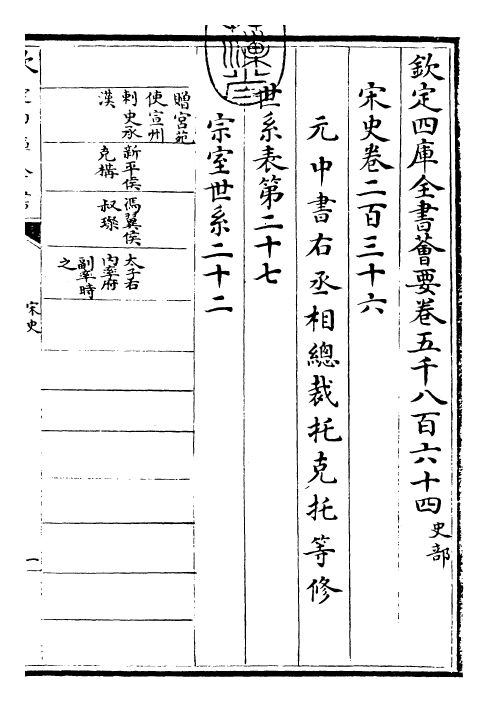 欽定四庫全書薈要卷五千八百六十四 史部
宋史卷二百三十六
元中書右丞相總裁托克托等修
世系表第二十七
宗室世系二十二
贈宮苑
使宣州
刺史承
漢
新平侯
克構
馮翊侯
叔璨
太子右
內率府
副率時
之
宋史
一